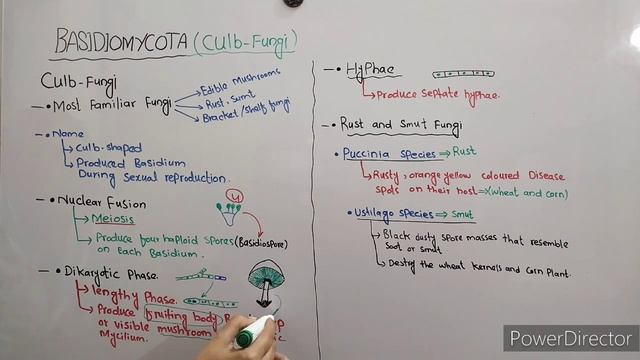 BASIDIOMYCOTA (Culb-Fungi)
Culb-Fungi
Most Familiar Fungi
Edible Mushrooms
Rust, Sumt
Bracket/Shelf fungi
Name
Culb-shaped
Produced Basidium
During Sexual reproduction.
Nuclear Fusion
Meiosis
4
Produce four haploid spores (Basidiospore)
on each Basidium.
Dikaryotic Phase.
lengthy Phase.
Produce Fruiting body
or visible mushroom
Mycilium.
Hyphae
Produce Septate hyphae.
Rust and Smut Fungi
Puccinia species ⇒ Rust
Rusty, orange yellow coloured Disease
spots on their host ⇒ (wheat and corn)
Ustilago species ⇒ Smut
Black dusty spore masses that resemble
Soot or smut
Destroy the wheat kernels and Corn Plant.
PowerDirector